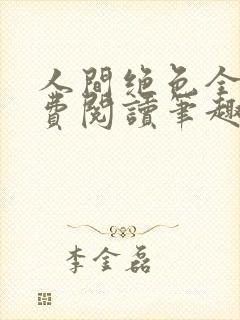 人間絶色全
費閱讀筆趣
李金磊